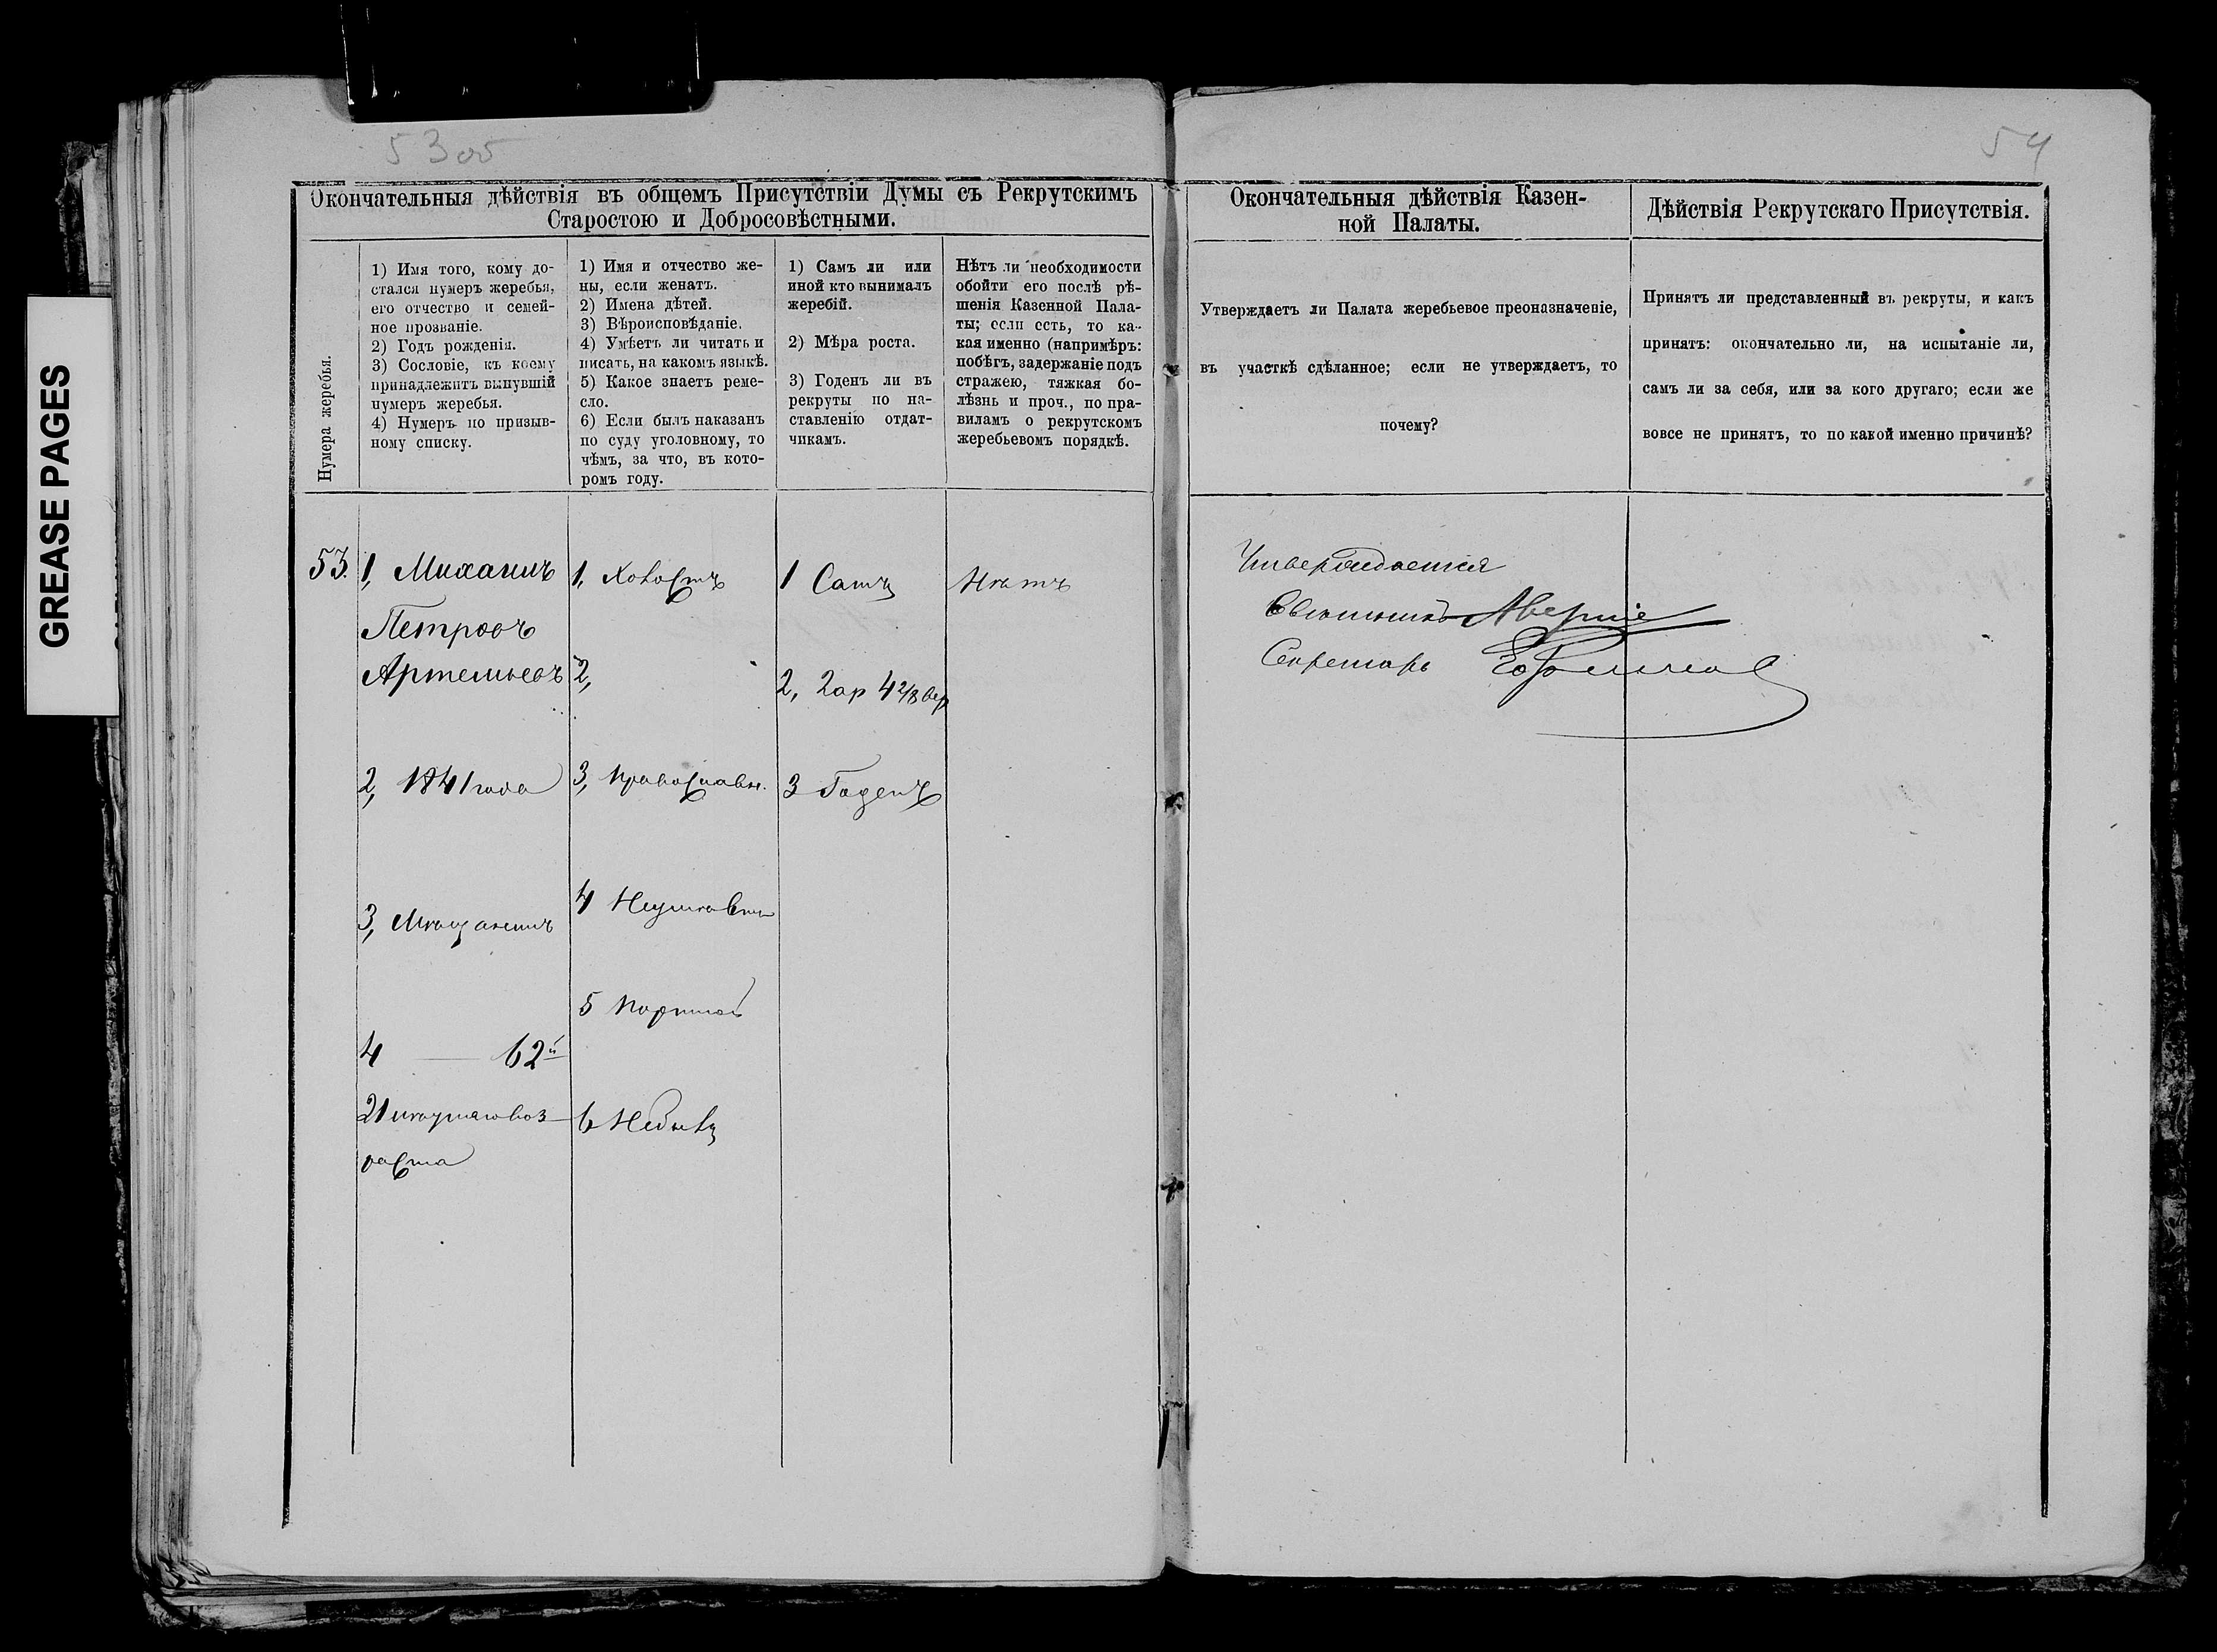 GREASE PAGES
53 об
54
Окончательныя дѣйствія въ общемъ Присутствіи Думы съ Рекрутскимъ
Старостою и Добросовѣстными.
Нумера жеребья.
1) Имя того, кому до-
стался нумеръ жеребья,
его отчество и семей-
ное прозваніе.
2) Годъ рожденія.
3) Сословіе, къ коему
принадлежитъ вынувшій
нумеръ жеребья.
4) Нумеръ по призыв-
ному списку.
1) Имя и отчество же-
ны, если женатъ.
2) Имена дѣтей.
3) Вѣроисповѣданіе.
4) Умѣетъ ли читать и
писать, на какомъ языкѣ.
5) Какое знаетъ реме-
сло.
6) Если былъ наказанъ
по суду уголовному, то
чѣмъ, за что, въ кото-
ромъ году.
1) Самъ ли или
иной кто вынималъ
жеребій.
2) Мѣра роста.
3) Годенъ ли въ
рекруты по на-
ставленію отдат-
чикамъ.
Нѣтъ ли необходимости
обойти его послѣ рѣ-
шенія Казенной Пала-
ты; если есть, то ка-
кая именно (напримѣръ:
побѣгъ, задержаніе подъ
стражею, тяжкая бо-
лѣзнь и проч., по пра-
виламъ о рекрутскомъ
жеребьевомъ порядкѣ.
53. 1, Михаилъ
Петровъ
Артемьевъ
2, 1841 года
3, Мѣщанинъ
4 — 62й
21 лѣтняго воз-
раста
1, Холостъ
2,
3, Православн.
4 Неумѣетъ
5 Портной
6 Небылъ
1 Самъ
2, 2 ар 4 2/8 вер
3 Годенъ
Нѣтъ
Окончательныя дѣйствія Казен-
ной Палаты.
Утверждаетъ ли Палата жеребьевое преоназначеніе,
въ участкѣ сдѣланное; если не утверждаетъ, то
почему?
Утверждается
Совѣтникъ
Секретарь
Дѣйствія Рекрутскаго Присутствія.
Принятъ ли представленный въ рекруты, и какъ
принятъ: окончательно ли, на испытаніе ли,
самъ ли за себя, или за кого другаго; если же
вовсе не принятъ, то по какой именно причинѣ?